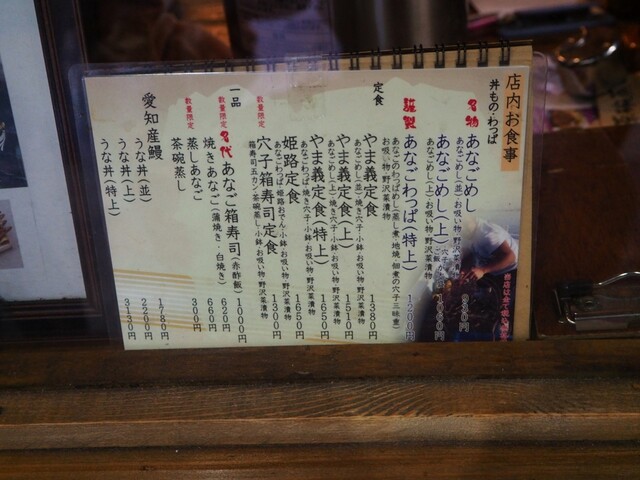 店内お食事
丼もの・わっぱ
名物 あなごめし
あなごめし(並) お吸い物 野沢菜漬物
あなごめし(上)
あなごめし(上) お吸い物 野沢菜漬物
謹製 あなごわっぱ(特上) 1200円
あなごのわっぱめし(蒸し煮・地焼・佃煮の穴子三昧重)
お吸い物 野沢菜漬物
定食
やま義定食 1380円
あなごめし(並)・焼き穴子・小鉢・お吸い物 野沢菜漬物
やま義定食(上) 1510円
あなごめし(上)・焼き穴子・小鉢・お吸い物 野沢菜漬物
やま義定食(特上) 1650円
あなごわっぱ・焼き穴子・小鉢・お吸い物 野沢菜漬物
姫路定食 1650円
あなごわっぱ・姫路おでん・小鉢・お吸い物 野沢菜漬物
数量限定 穴子箱寿司定食 1300円
箱寿司五カン・茶碗蒸し・小鉢・お吸い物 野沢菜漬物
一品
あなご箱寿司(赤酢飯) 1000円
数量限定 焼きあなご(蒲焼き・白焼き) 620円
蒸しあなご 660円
数量限定 茶碗蒸し 300円
愛知産鰻
うな丼(並) 1780円
うな丼(上) 2200円
うな丼(特上) 3130円